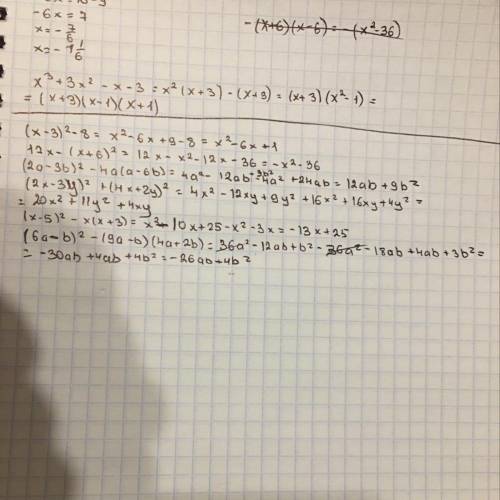 -6x = 7
x = - 7/6
x = - 1 1/6
-(x+6)(x-6) = -(x²-36)
x³ + 3x² - x - 3 = x² (x+3) - (x+3) = (x+3)(x²-1) =
= (x+3)(x-1)(x+1)
(x-3)² - 8 = x² - 6x + 9 - 8 = x² - 6x + 1
12x - (x+6)² = 12x - x² - 12x - 36 = -x² - 36
(2a-3b)² - 4a(a-6b) = 4a² - 12ab + 9b² - 4a² + 24ab = 12ab + 9b²
(2x-3y)² + (4x+2y)² = 4x² - 12xy + 9y² + 16x² + 16xy + 4y² =
= 20x² + 11y² + 4xy
(x-5)² - x(x+3) = x² - 10x + 25 - x² - 3x = -13x + 25
(6a-b)² - (9a-b)(4a+2b) = 36a² - 12ab + b² - 36a² - 18ab + 4ab + 3b² =
= -30ab + 4ab + 4b² = -26ab + 4b²